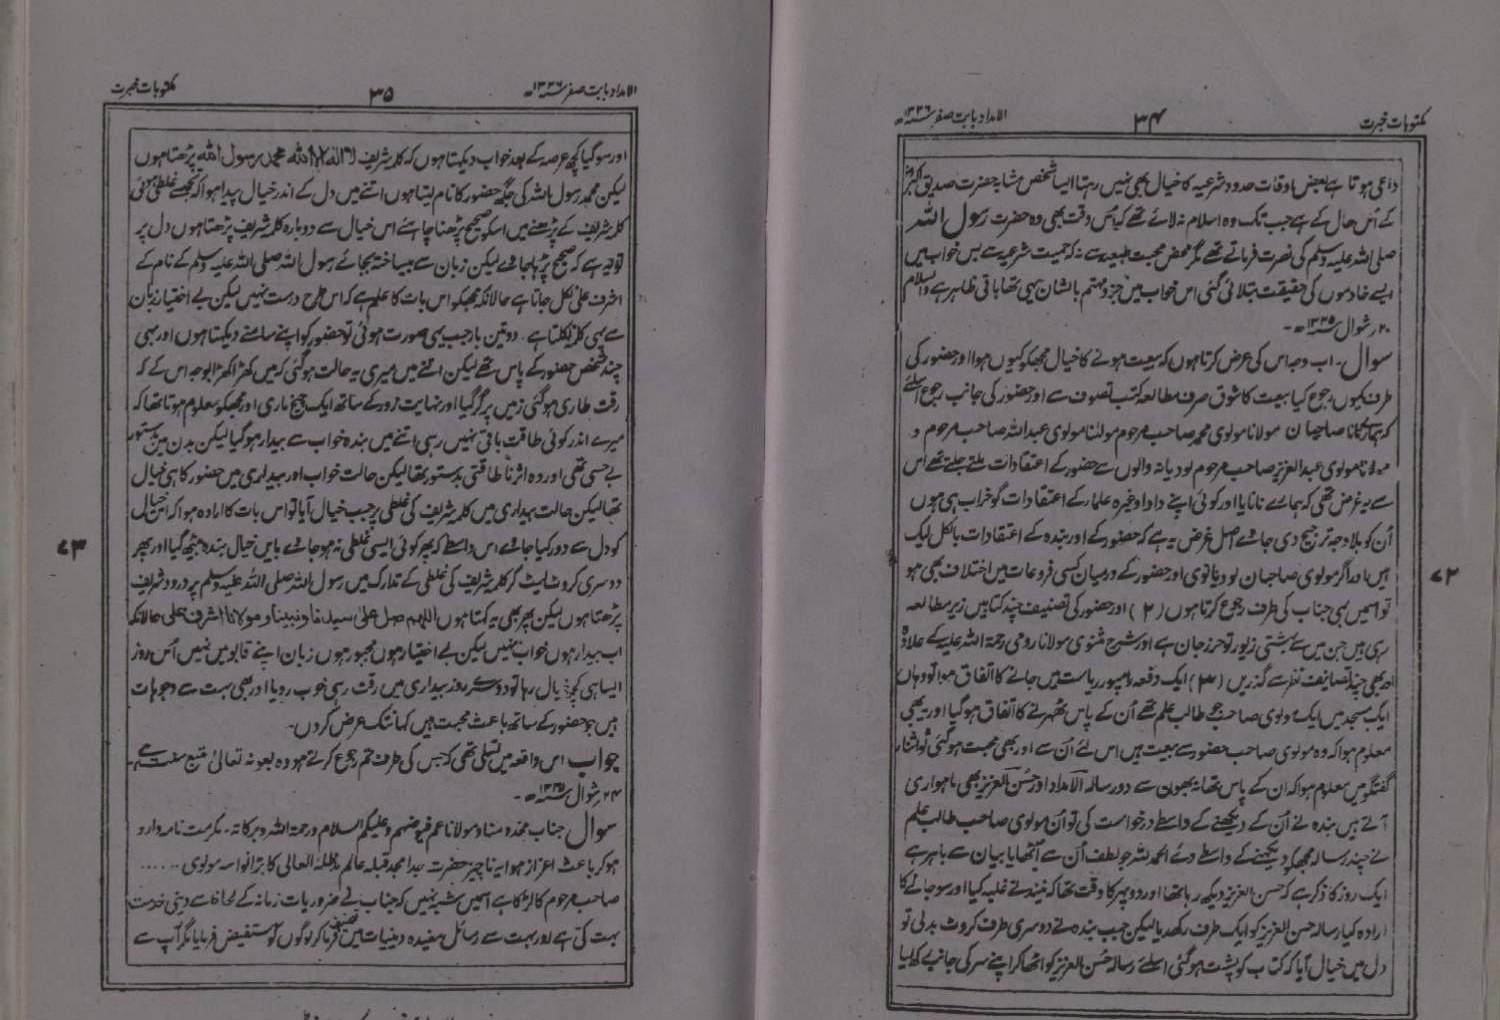 مکتوبات خبرت ۳۴ الامداد بابت صفر ۱۳۳۶ھ
داعی ہوتا ہے بعض اوقات حدود شرعیہ کا خیال بھی نہیں رہتا ایسا شخص مشابہ حضرت صدیق اکبرؓ
کے اُس حال کے ہے جب تک وہ اسلام نہ لائے تھے کہ اُس وقت بھی وہ حضرت رسول اللہ
صلی اللہ علیہ وسلم کی نصرت فرماتے تھے مگر محض محبت طبعیہ سے نہ کہ حمیت شرعیہ سے بس خواب میں
ایسے خادموں کی حقیقت بتلائی گئی اس خواب میں جزو مہتم بالشان یہی تھا باقی ظاہر ہے والسلام
۲۰ شوال ۱۳۳۵ھ۔
سوال۔ اب وجہ اس کی عرض کرتا ہوں کہ بیعت ہونے کا خیال مجھکو کیوں ہوا اور حضور کی
طرف کیوں رجوع کیا بیعت کا شوق صرف مطالعہ کتب تصوف سے اور حضور کی جانب رجوع اسلئے
کہ ہمارے نانا صاحبان مولانا مولوی محمد صاحب مرحوم مولٰنا مولوی عبداللہ صاحب مرحوم و
مولانا مولوی عبدالعزیز صاحب مرحوم لودیانہ والوں سے حضور کے اعتقادات ملتے جلتے تھے اس
سے یہ غرض تھی کہ ہمارے نانا یا اور کوئی اپنے دادا وغیرہ علماء کے اعتقادات گو خراب ہی ہوں
اُن کو بلاوجہ ترجیح دی جاوے اصل غرض یہ ہے کہ حضور کے اور بندہ کے اعتقادات بالکل ایک
ہیں اور اگر مولوی صاحبان لودیانوی اور حضور کے درمیان کسی فروعات میں اختلاف بھی ہو
۷۲
تو اسمیں بھی جناب کی طرف رجوع کرتا ہوں (۲) اور حضور کی تصنیف چند کتابیں زیر مطالعہ
رہی ہیں جن میں سے بہشتی زیور تو حرز جان ہے اور شرح مثنوی مولانا رومی رحمۃ اللہ علیہ کے علاوہ
اور بھی چند تصانیف نظر سے گذریں (۳) ایک دفعہ رامپور ریاست میں جانے کا اتفاق ہوا تو وہاں
ایک مسجد میں ایک مولوی صاحب جو طالب علم تھے اُن کے پاس ٹھہرنے کا اتفاق ہوگیا اور یہ بھی
معلوم ہوا کہ وہ مولوی صاحب حضور سے بیعت ہیں اس لئے اُن سے اور بھی محبت ہوگئی تو اثناء
گفتگو میں معلوم ہوا کہ ان کے پاس تھانہ بھون سے دو رسالہ الامداد اور حسن العزیز بھی ماہواری
آتے ہیں بندہ نے اُن کے دیکھنے کے واسطے درخواست کی تو اُن مولوی صاحب طالب علم
نے چند رسالہ مجھکو دیکھنے کے واسطے دئے الحمد للہ جو لطف اُن سے اُٹھایا بیان سے باہر ہے
ایک روز کا ذکر ہے کہ حسن العزیز دیکھ رہا تھا اور دوپہر کا وقت تھا کہ نیند نے غلبہ کیا اور سو جانے کا
ارادہ کیا رسالہ حسن العزیز کو ایک طرف رکھدیا لیکن جب بندہ نے دوسری طرف کروٹ بدلی تو
دل میں خیال آیا کہ کتاب کو پشت ہوگئی اسلئے رسالہ حسن العزیز کو اٹھا کر اپنے سر کی جانب رکھ لیا
الامداد بابت صفر ۱۳۳۶ھ ۳۵ مکتوبات خبرت
اور سوگیا کچھ عرصہ کے بعد خواب دیکھتا ہوں کہ کلمہ شریف لا الہ الا اللہ محمد رسول اللہ پڑھتا ہوں
لیکن محمد رسول اللہ کی جگہ حضور کا نام لیتا ہوں اتنے میں دل کے اندر خیال پیدا ہوا کہ تجھسے غلطی ہوئی
کلمہ شریف کے پڑھنے میں اسکو صحیح پڑھنا چاہئے اس خیال سے دوبارہ کلمہ شریف پڑھتا ہوں دل پر
تو یہ ہے کہ صحیح پڑھا جاوے لیکن زبان سے بیساختہ بجائے رسول اللہ صلی اللہ علیہ وسلم کے نام کے
اشرف علی نکل جاتا ہے حالانکہ مجھکو اس بات کا علم ہے کہ اس طرح درست نہیں لیکن بے اختیار زبان
سے یہی کلمہ نکلتا ہے۔ دو تین بار جب یہی صورت ہوئی تو حضور کو اپنے سامنے دیکھتا ہوں اور بھی
چند شخص حضور کے پاس تھے لیکن اتنے میں میری یہ حالت ہوگئی کہ میں کھڑا کھڑا بوجہ اس کے کہ
رقت طاری ہوگئی زمین پر گر گیا اور نہایت زور کے ساتھ ایک چیخ ماری اور مجھکو معلوم ہوتا تھا کہ
میرے اندر کوئی طاقت باقی نہیں رہی اتنے میں بندہ خواب سے بیدار ہوگیا لیکن بدن میں بدستور
بے حسی تھی اور وہ اثر ناطاقتی بدستور تھا لیکن حالت خواب اور بیداری میں حضور کا ہی خیال
تھا لیکن حالت بیداری میں کلمہ شریف کی غلطی پر جب خیال آیا تو اس بات کا ارادہ ہوا کہ اس خیال
کو دل سے دور کیا جاوے اس واسطے کہ پھر کوئی ایسی غلطی نہ ہو جاوے بایں خیال بندہ بیٹھ گیا اور پھر
۷۳
دوسری کروٹ لیٹ کر کلمہ شریف کی غلطی کے تدارک میں رسول اللہ صلی اللہ علیہ وسلم پر درود شریف
پڑھتا ہوں لیکن پھر بھی یہ کہتا ہوں اللہم صل علی سیدنا و نبینا و مولانا اشرف علی حالانکہ
اب بیدار ہوں خواب نہیں لیکن بے اختیار ہوں مجبور ہوں زبان اپنے قابو میں نہیں اُس روز
ایسا ہی کچھ خیال رہا تو دوسرے روز بیداری میں رقت رہی خوب رویا اور بھی بہت سے وجوہات
ہیں جو حضور کے ساتھ باعث محبت ہیں کہانتک عرض کروں۔
جواب اس واقعہ میں تسلی تھی کہ جس کی طرف تم رجوع کرتے ہو وہ بعونہ تعالیٰ متبع سنت ہے۔
۲۴ شوال ۱۳۳۵ھ۔
سوال جناب مخدومنا و مولانا عم فیوضہم وعلیکم السلام ورحمۃ اللہ وبرکاتہ۔ مکرمت نامہ وارد
ہوکر باعث اعزاز ہوا یہ ناچیز حضرت جد امجد قبلہ عالم مدظلہ العالی کا بڑا نواسہ مولوی ......
صاحب مرحوم کا لڑکا ہے اسمیں شبہ نہیں کہ جناب نے ضروریات زمانہ کے لحاظ سے دینی خدمت
بہت کی ہے اور بہت سے رسائل مفیدہ دینیات میں تصنیف فرما کر لوگوں کو مستفیض فرمایا مگر آپ سے